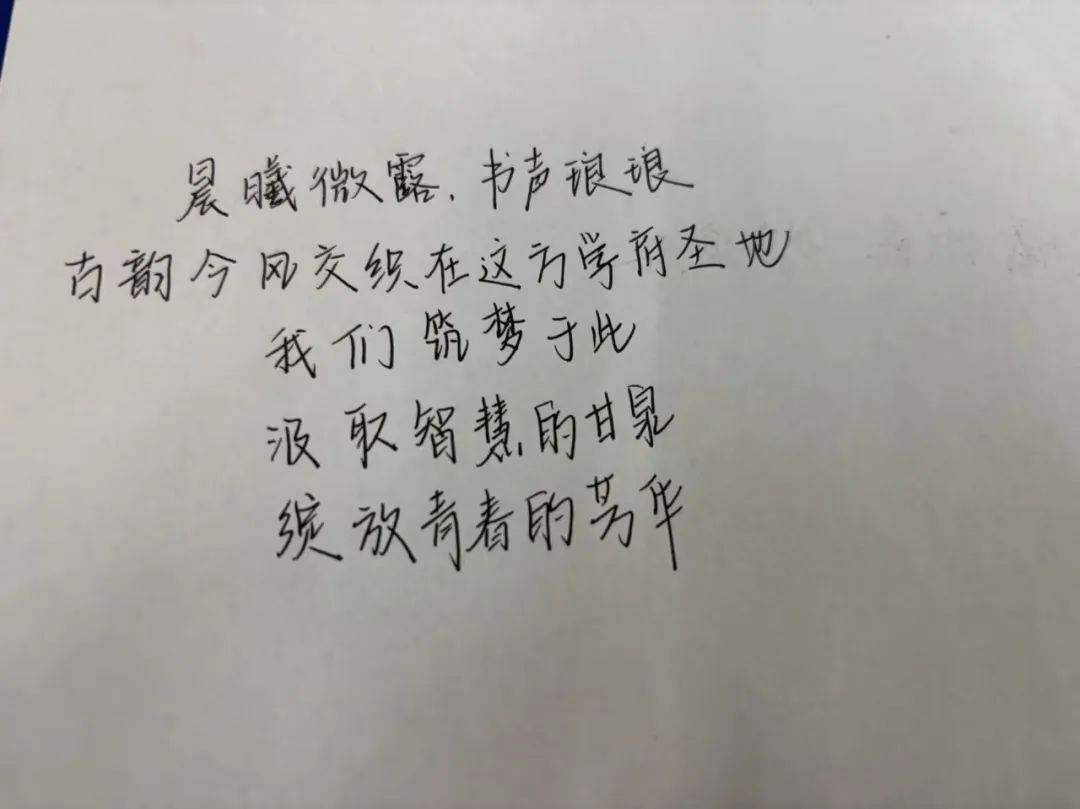 晨曦微露，书声琅琅
古韵今风交织在这方学府圣地
我们筑梦于此
汲取智慧的甘泉
绽放青春的芳华